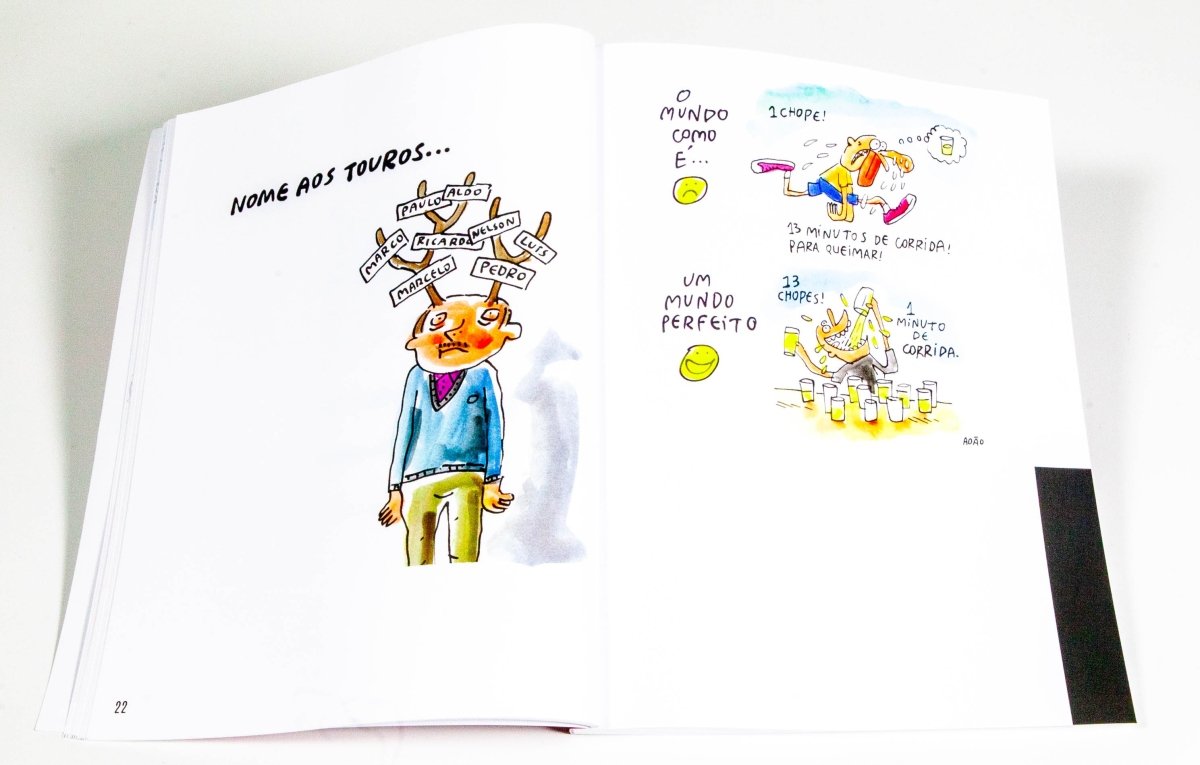 NOME AOS TOUROS...
PAULO
ALDO
MARCO
RICARDO
NELSON
LUIS
MARCELO
PEDRO
22
O
MUNDO
COMO
É...
1 CHOPE!
13 MINUTOS DE CORRIDA!
PARA QUEIMAR!
UM
MUNDO
PERFEITO
13
CHOPES!
1
MINUTO
DE
CORRIDA.
ADÃO